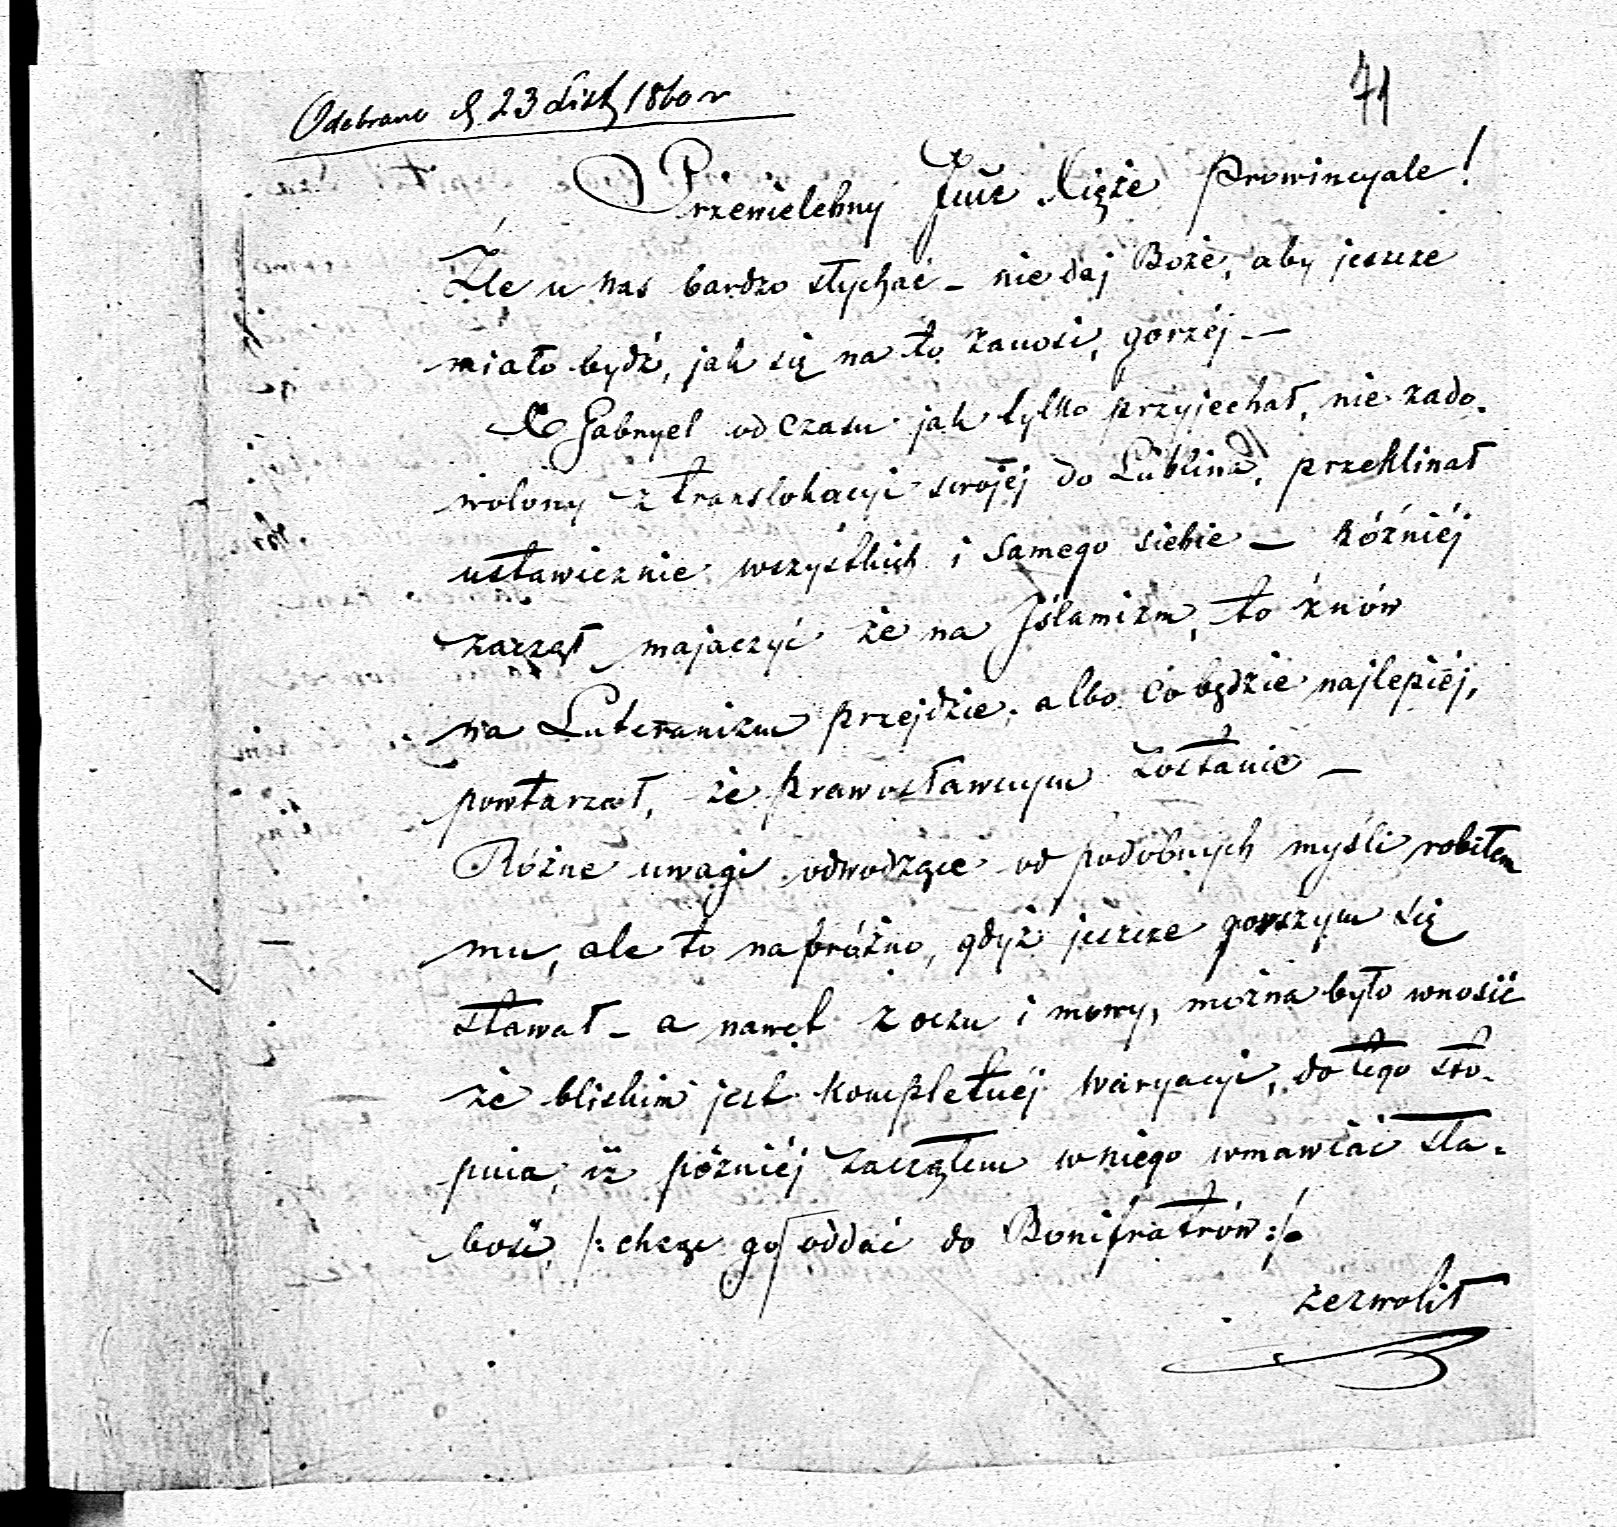 71
Odebrano d. 23 List. 1860 r
Przewielebny Xięże Prowincyale!
Źle u nas bardzo słychać – nie daj Boże, aby jeszcze
miało bydź, jak się na to zanosi, gorzéj –
X Gabryel od czasu jak tylko przyjechał, nie zado-
wolony z translokacyi swojéj do Lublina, przeklinał
ustawicznie wszystkich i samego siebie – Późniéj
zaczął majaczyć że na Jslamizm, to znów
na Luteranizm przejdzie, albo co będzie najlepiéj,
powtarzał, że prawosławnym zostanie –
Różne uwagi odwodzące od podobnych myśli robiłem
mu, ale to napróżno, gdyż jeszcze gorszym się
stawał – a nawet z oczu i mowy, można było wnosić
że bliskim jest kompletnéj waryacyi, do tego sto-
pnia, iż późniéj zacząłem w niego wmawiać sła-
bość, /: chcąc go oddać do Bonifratrów :/
zezwolił